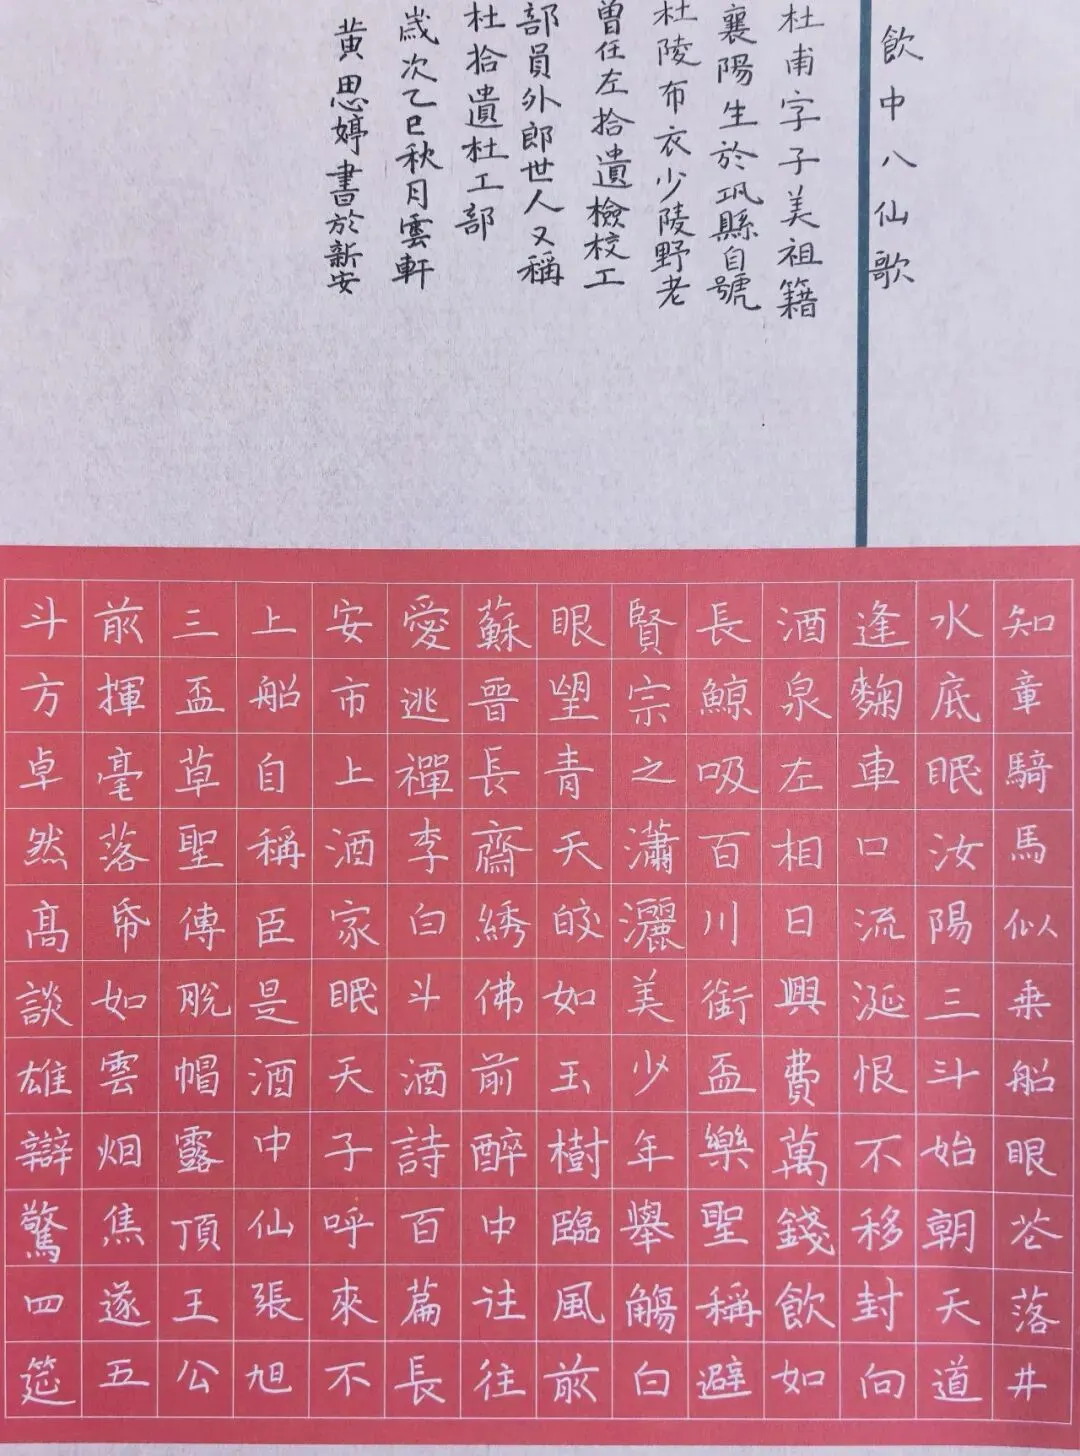 飲中八仙歌
杜甫字子美祖籍
襄陽生於巩縣自號
杜陵布衣少陵野老
曾任左拾遺檢校工
部員外郎世人又稱
杜拾遺杜工部
歲次乙巳秋月雲軒
黃思婷書於新安
知章騎馬似乗船眼花落井
水底眠汝陽三斗始朝天道
逢麴車口流涎恨不移封向
酒泉左相日興費萬錢飲如
長鯨吸百川銜盃樂聖稱避
賢宗之瀟灑美少年舉觴白
眼望青天皎如玉樹臨風前
蘇晉長齋綉佛前醉中往往
愛逃禪李白斗酒詩百篇長
安市上酒家眠天子呼來不
上船自稱臣是酒中仙張旭
三盃草聖傳脫帽露頂王公
前揮毫落帋如雲烟焦遂五
斗方卓然高談雄辯驚四筵